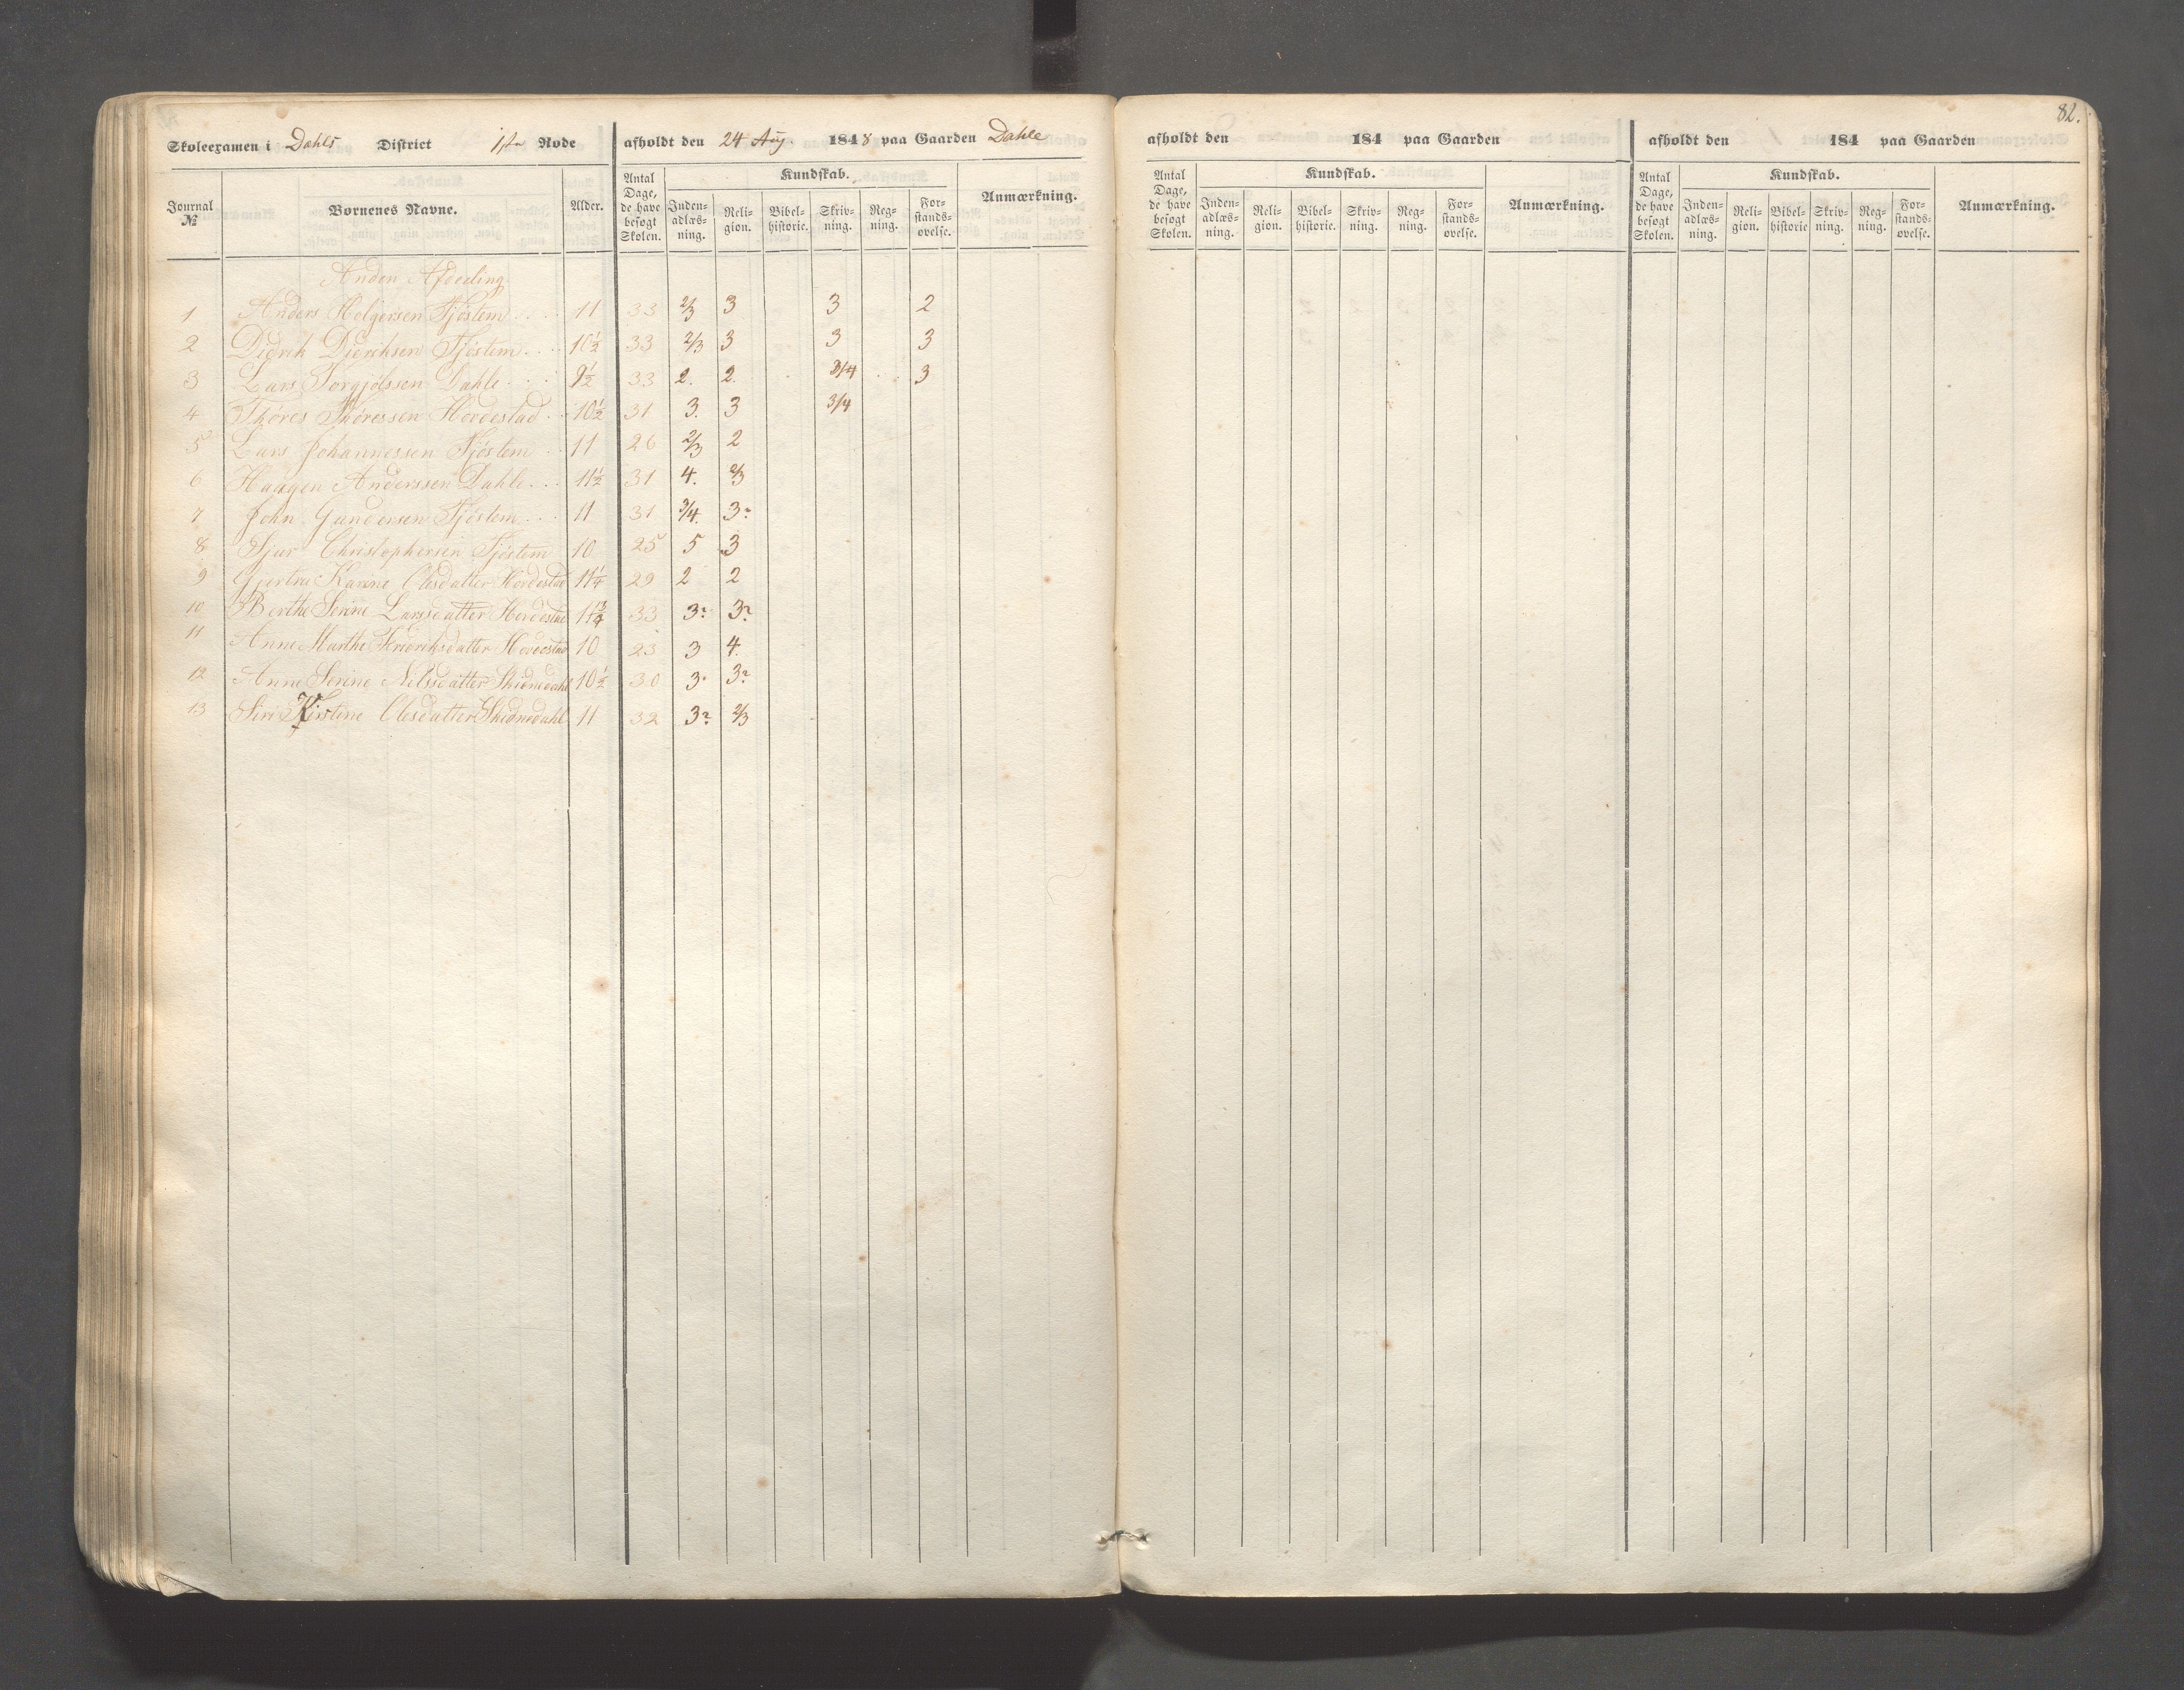 82.
Skoleexamen i Dahls District 1ste Rode afholdt den 24 Aug. 1848 paa Gaarden Dahle
Journal № Børnenes Navne. Alder. Antal Dage, de have besøgt Skolen. Kundskab. Inden-adlæs-ning. Reli-gion. Bibel-historie. Skriv-ning. Reg-ning. For-stands-øvelse. Anmærkning.
Anden Afdeling
1 Anders Holgersen Tjöstem 11 33 2/3 3 3 2
2 Didrik Didriksen Tjöstem 10½ 33 2/3 3 3 3
3 Lars Torgjølssen Dahle 9½ 33 2. 2. 3/4 3
4 Thöres Thöressen Hovdestad 10½ 31 3. 3 3/4
5 Lars Johannessen Tjöstem 11 26 2/3 2
6 Haagen Anderssen Dahle 11½ 31 4. 2/3
7 John Gundersen Tjöstem 11 31 3/4. 3?
8 Sjur Christophersen Tjöstem 10 25 5 3
9 Gjertru Karine Olesdatter Hovdestad 11¼ 29 2 2
10 Berthe Serine Larsdatter Hovdestad 11¾ 33 3? 3?
11 Anne Marthe Fredriksdatter Hovdestad 10 23 3 4.
12 Anne Serine Nilsdatter Skednedahl 10½ 30 3. 3?
13 Siri Kirstine Olesdatter Skednedahl 11 32 3? 2/3
afholdt den 184 paa Gaarden
Antal Dage, de have besøgt Skolen. Kundskab. Inden-adlæs-ning. Reli-gion. Bibel-historie. Skriv-ning. Reg-ning. For-stands-øvelse. Anmærkning.
afholdt den 184 paa Gaarden
Antal Dage, de have besøgt Skolen. Kundskab. Inden-adlæs-ning. Reli-gion. Bibel-historie Skriv-ning. Reg-ning. For-stands-øvelse. Anmærkning.